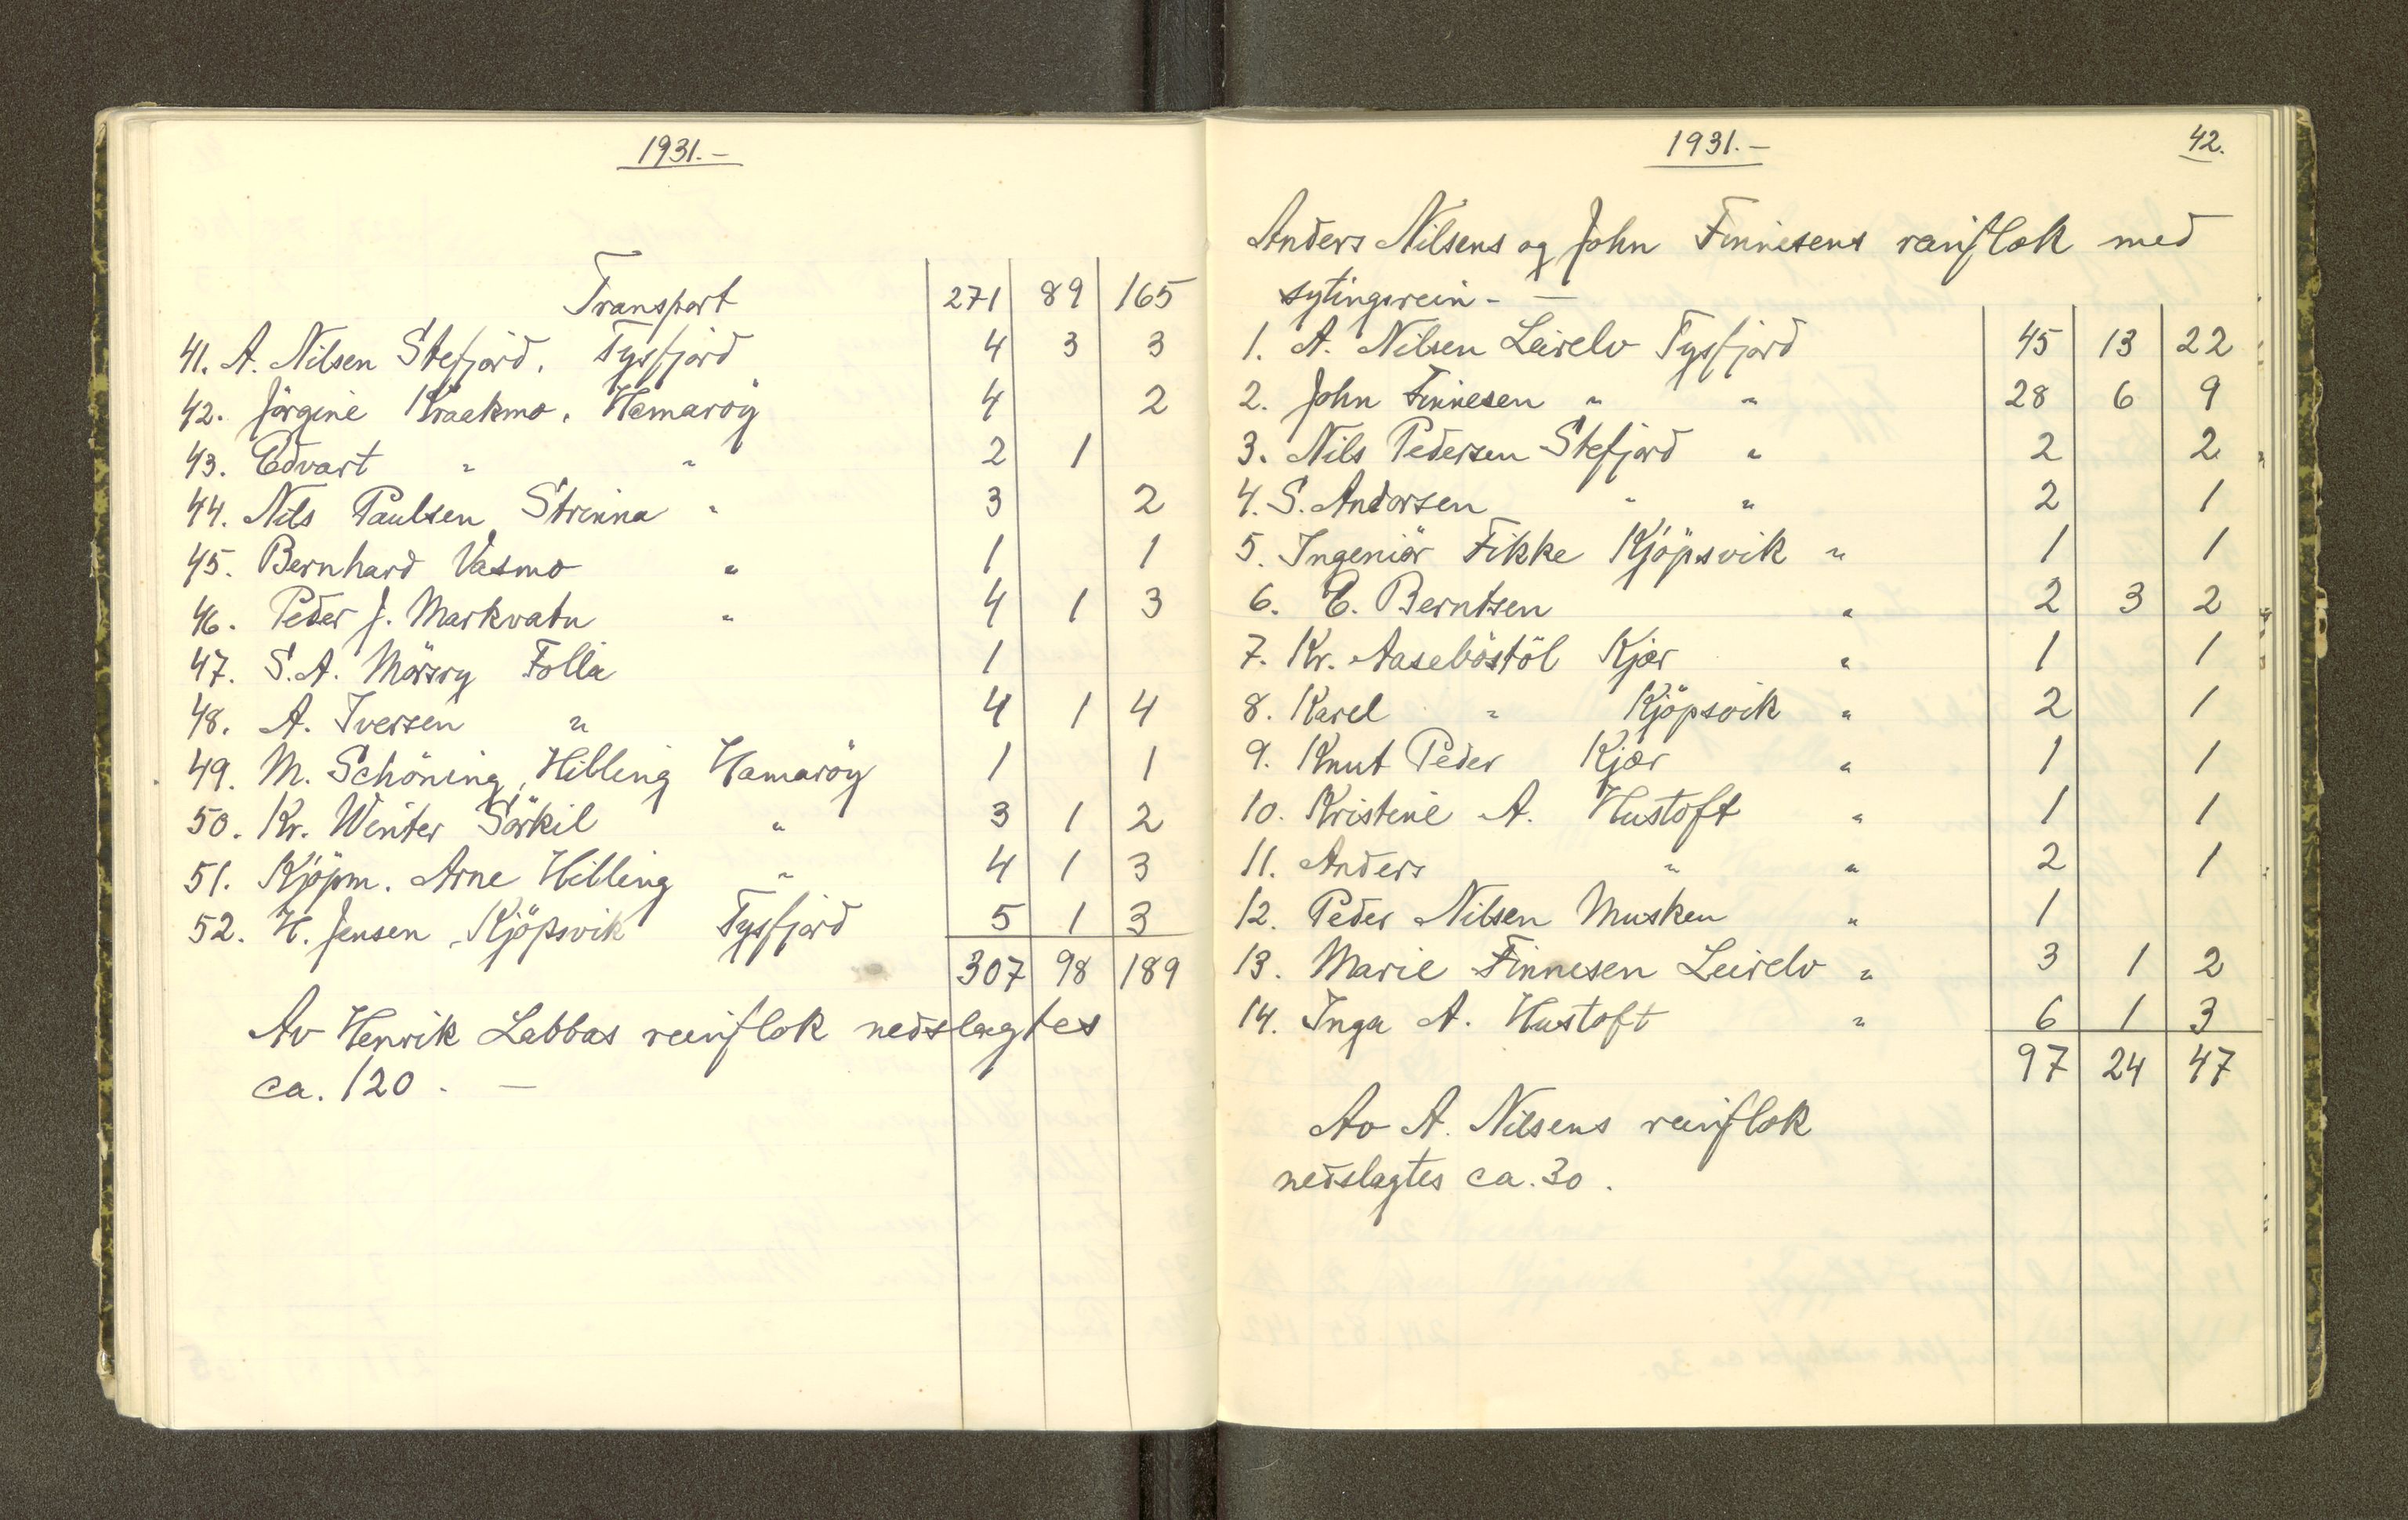 1931.-
Transport 271 89 165
41. A. Nilsen Stefjord. Tysfjord 4 3 3
42. Jörgine Kraakmo. Hamaröy 4 2
43. Edvart " " 2 1
44. Nils Paulsen Strinna " 3 2
45. Bernhard Vasmo " 1 1
46. Peder J. Markvatn " 4 1 3
47. S. A. Mörsry Folla 1
48. A. Iversen " 4 1 4
49. M. Schöning, Hilling Hamaröy 1 1
50. Kr. Winter Sörkil " 3 1 2
51. Kjöpm. Arne Hilling " 4 1 3
52. H. Jensen, Kjöpsvik Tysfjord 5 1 3
307 98 189
Av Henrik Labbas reinflok nedslagtes
ca. 120. —
1931.- 42.
Anders Nilsens og John Finnesens reinflok med
sytingsrein - —
1. A. Nilsen Leirelv Tysfjord 45 13 22
2. John Finnesen " " 28 6 9
3. Nils Pedersen Stefjord " 2 2
4. S. Andorsen " " 2 1
5. Ingeniör Fikke Kjöpsvik " 1 1
6. E. Berntsen " 2 3 2
7. Kr. Aaseböstöl Kjær " 1 1
8. Karel " Kjöpsvik " 2 1
9. Knut Peder Kjær " 1 1
10. Kristine A. Hustoft " 1 1
11. Anders " " 2 1
12. Peder Nilsen Musken " 1
13. Marie Finnesen Leirelv " 3 1 2
14. Inga A. Hustoft " 6 1 3
97 24 47
Av A. Nilsens reinflok
nedslagtes ca. 30.